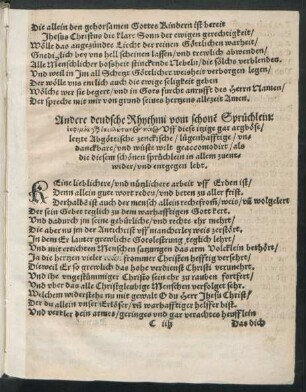 Die allein den gehorsamen Gottes Kindern ist bereit
Jhesus Christus die klare Sonn der ewigen gerechtigkeit/
Wölle das angezündte Liecht der reinen Göttlichen warheit/
Gnediglich bey uns hell scheinen lassen/ und trewlich abwenden/
Alle Menschlicher boßheit stinckende Nebeln/ die solchs verblenden.
Und weil in jm all Schetz Göttlicher weisheit verborgen ligen/
Der wölle uns entlich auch die ewige seligkeit geben
Wölche wer sie begert/ und in Gots furcht anrufft des Herrn Namen/
Der spreche mit mir von grund seines hertzens allezeit Amen.
Andere deudsche Rhythmi vom schonē Sprüchlein:
Uff diese itzige gar argböse/
letzte Abgöttische zenckische/ lügenhafftige/ undanckbare/ und wüste welt
als die diesem schönen sprüchlein in allem zuentwider/
und entgegen lebt.
Keine lieblichere/ und nützlichere arbeit uff Erden ist/
Denn allein gute wort reden/ und beten zu aller frist.
Derhalbē ist auch der mensch allein rechtfrom/ weis/ uñ wolgelert
Der sein Gebet teglich zu dem warhafftigen Gott kert.
Und dadurch jm seine gebürliche/ und rechte ehr mehrt/
Die aber nu jm der Antichrist uff mancherley weis zerstört.
In dem Er lauter grewliche Gotteslesterung teglich lehrt/
Und mit ertichtem Menschen satzungen das arm Völcklein bethört/
Ja die hertzen vieler frommer Christen hefftig versehrt/
Dieweil Er so grewlich das hohe verdienst Christi verunehrt/
Und ihn ungestümmiger Christo sein ehr zu rauben fortfert/
Und uber das alle Christgleubige Menschen verfolget sehr.
Welchem widerstehe nu mit gewalt O du Herr Jhesu Christ/
Der du allein unser Erlöser/ uñ warhafftiger helffer bist.
Und verleih dein armes/ geringes und gar verachtes heufflein
C iij Das dich